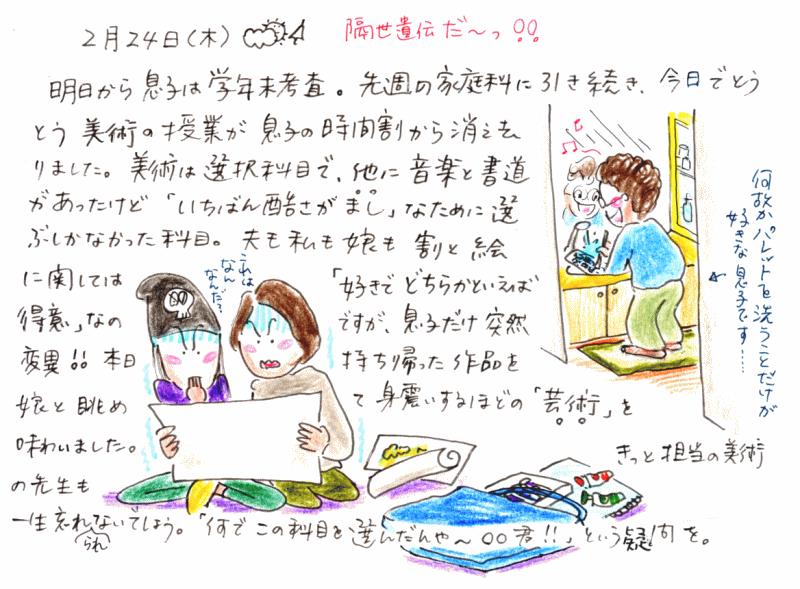 2月24日(木)
隔世遺伝だ〜っ!!
明日から息子は学年末考査。先週の家庭科に引き続き、今日でとう
とう美術の授業が息子の時間割から消え去
りました。美術は選択科目で、他に音楽と書道
があったけど「いちばん酷さがまし」なために選
ぶしかなかった科目。夫も私も娘も割と絵
に関しては「好きでどちらかといえば
得意」なのですが、息子だけ突然
変異!!本日持ち帰った作品を
娘と眺めて身震いするほどの「芸術」を
味わいました。きっと担当の美術
の先生も
一生忘れないでしょう。「何でこの科目を選んだんや〜○○君!!」という疑問を。
られ
これは
なんなんだ?
何故かパレットを洗うことだけが
好きな息子です……